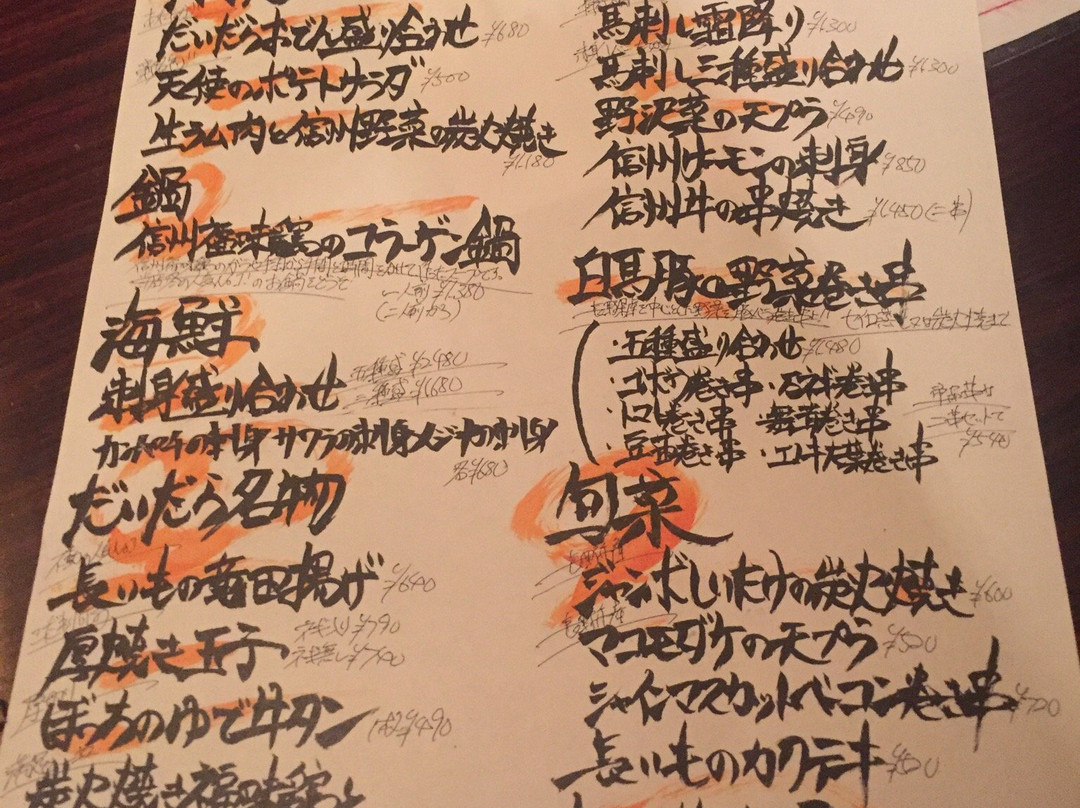 だいだらおでん盛り合わせ ¥680
天使のポテトサラダ ¥500
生ラム肉と信州野菜の炭火焼き
¥1,180
鍋
信州福味鶏のコラーゲン鍋
一人前 ¥1,380
(二人前から)
海鮮
刺身盛り合わせ 五種盛 ¥2480
三種盛 ¥1680
カンパチの刺身 サワラの刺身 メジナの刺身
各¥680
だいだら名物
長いもの竜田揚げ ¥640
厚焼き玉子 ¥790
¥740
ゆで牛タン ¥490
炭火焼き福味鶏
馬刺し霜降り ¥1300
馬刺し三種盛り合わせ ¥1,300
野沢菜の天プラ ¥490
信州サーモンの刺身 ¥850
信州牛の串焼き ¥1,450(二串)
白馬豚の野菜巻き串
・五種盛り合わせ ¥1,480
・ゴボウ巻き串 ・長ネギ巻き串
・トマト巻き串 ・舞茸巻き串
・豆苗巻き串 ・エノキ大葉巻き串
旬菜
ジャンボしいたけの炭火焼き ¥600
マコモダケの天プラ ¥520
シャインマスカットベーコン巻き串 ¥720
長いものカクテキ